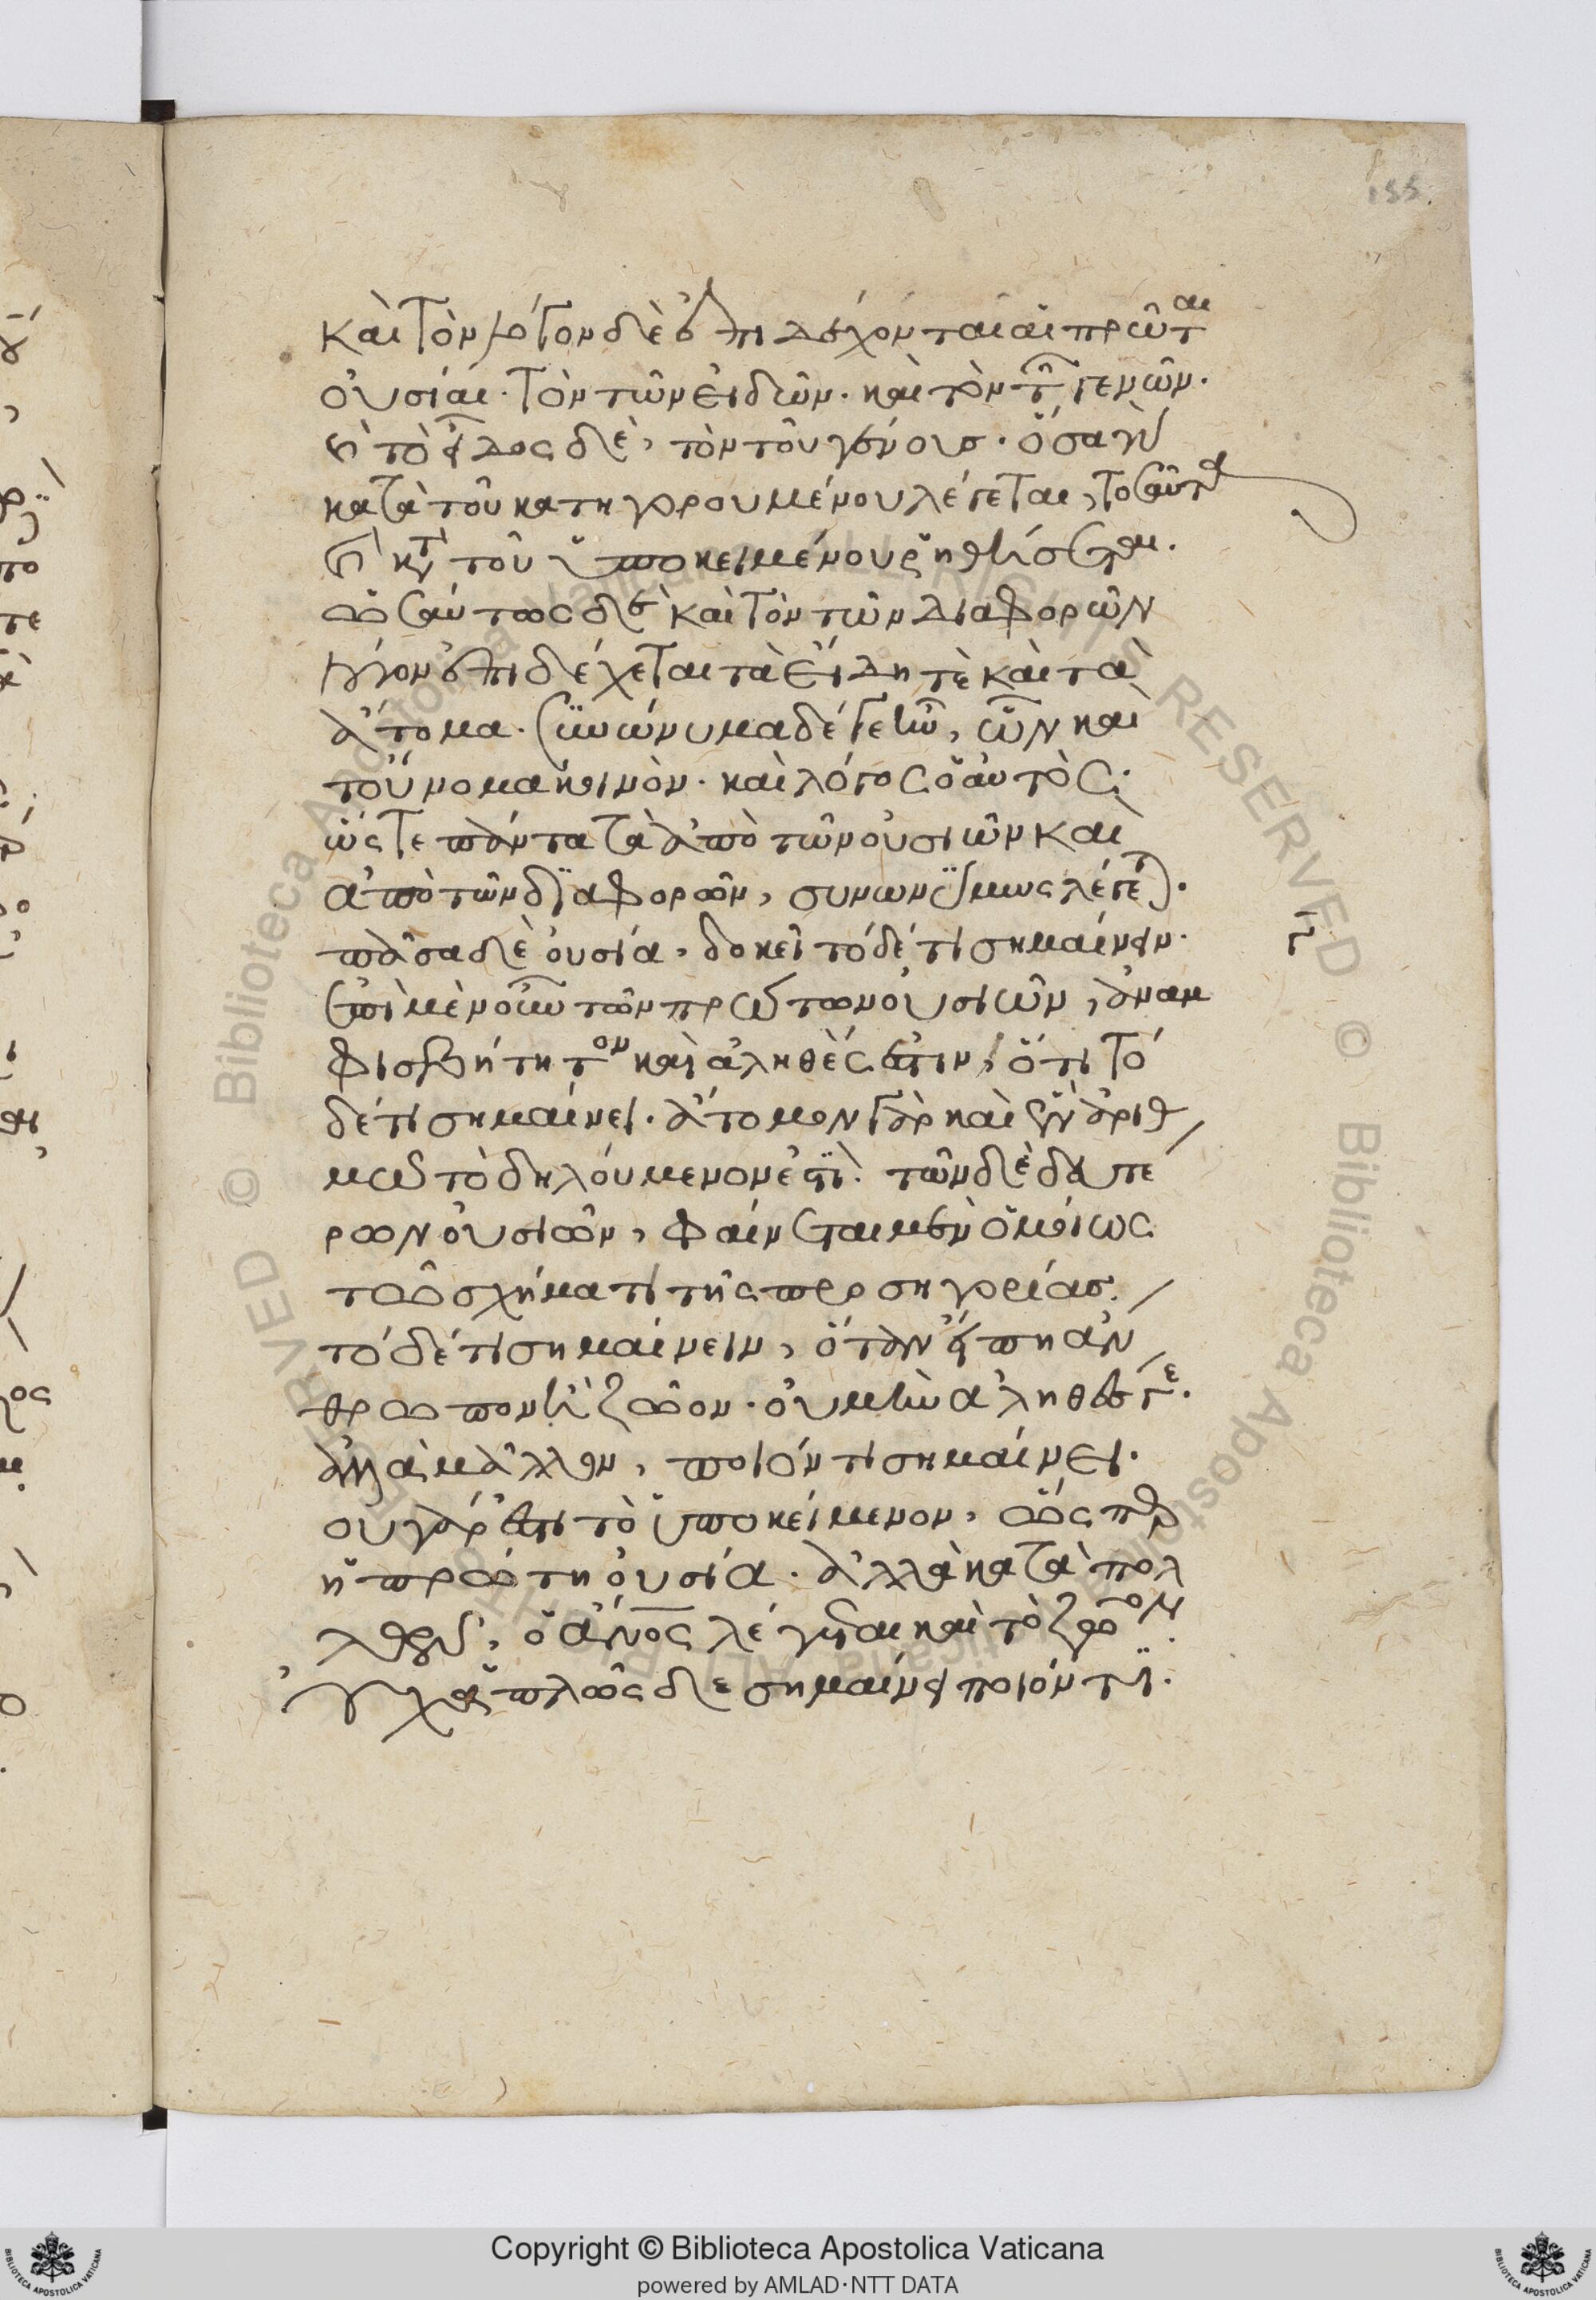 155
καὶ τὸν λόγον δὲ ἐπιδέχονται αἱ πρῶται
οὐσίαι. τὸν τῶν εἰδῶν. καὶ τὸν τῶν γενῶν.
καὶ τὸ εἶδος δὲ, τὸν τοῦ γένους. ὅσα γὰρ
κατὰ τοῦ κατηγορουμένου λέγεται, τοσαῦτα
καὶ κατὰ τοῦ ὑποκειμένου ῥηθήσεται.
ὡσαύτως δὲ καὶ τὸν τῶν διαφορῶν
λόγον ἐπιδέχεται τὰ εἴδη τὲ καὶ τὰ
ἄτομα. συνώνυμα δέ γε ἦν, ὧν καὶ
τοὔνομα κοινὸν. καὶ λόγος ὁ αὐτὸς.
ὥς τε πάντα τὰ ἀπὸ τῶν οὐσιῶν καὶ
ἀπὸ τῶν διαφορῶν, συνωνύμως λέγεται.
πᾶσα δὲ οὐσία, δοκεῖ τόδέ τι σημαίνειν.
ἐπὶ μὲν οὖν τῶν πρώτων οὐσιῶν, ἀναμ
φισβήτητον καὶ ἀληθές ἐστιν, ὅτι τό
δέ τι σημαίνει. ἄτομον γὰρ καὶ ἓν ἀριθ
μῶ τὸ δηλούμενον ἐστι. τῶν δὲ δευτέ
ρων οὐσιῶν, φαίνεται μὲν ὁμοίως
τῶ σχήματι τῆς προσηγορίας
τόδέ τι σημαίνειν, ὅταν εἴπη ἄν
θρωπον ἢ ζῶον. οὐ μὴν ἀληθές γε.
ἀλλὰ μᾶλλον, ποιόν τι σημαίνει.
οὐ γὰρ ἕν ἐστι τὸ ὑποκείμενον, ὥς περ
ἡ πρώτη οὐσία. ἀλλὰ κατὰ πολ
λῶν, ὁ ἄνος λέγεται καὶ τὸ ζῶον.
οὐχ ἁπλῶς δε σημαίνει ποιόν τι.